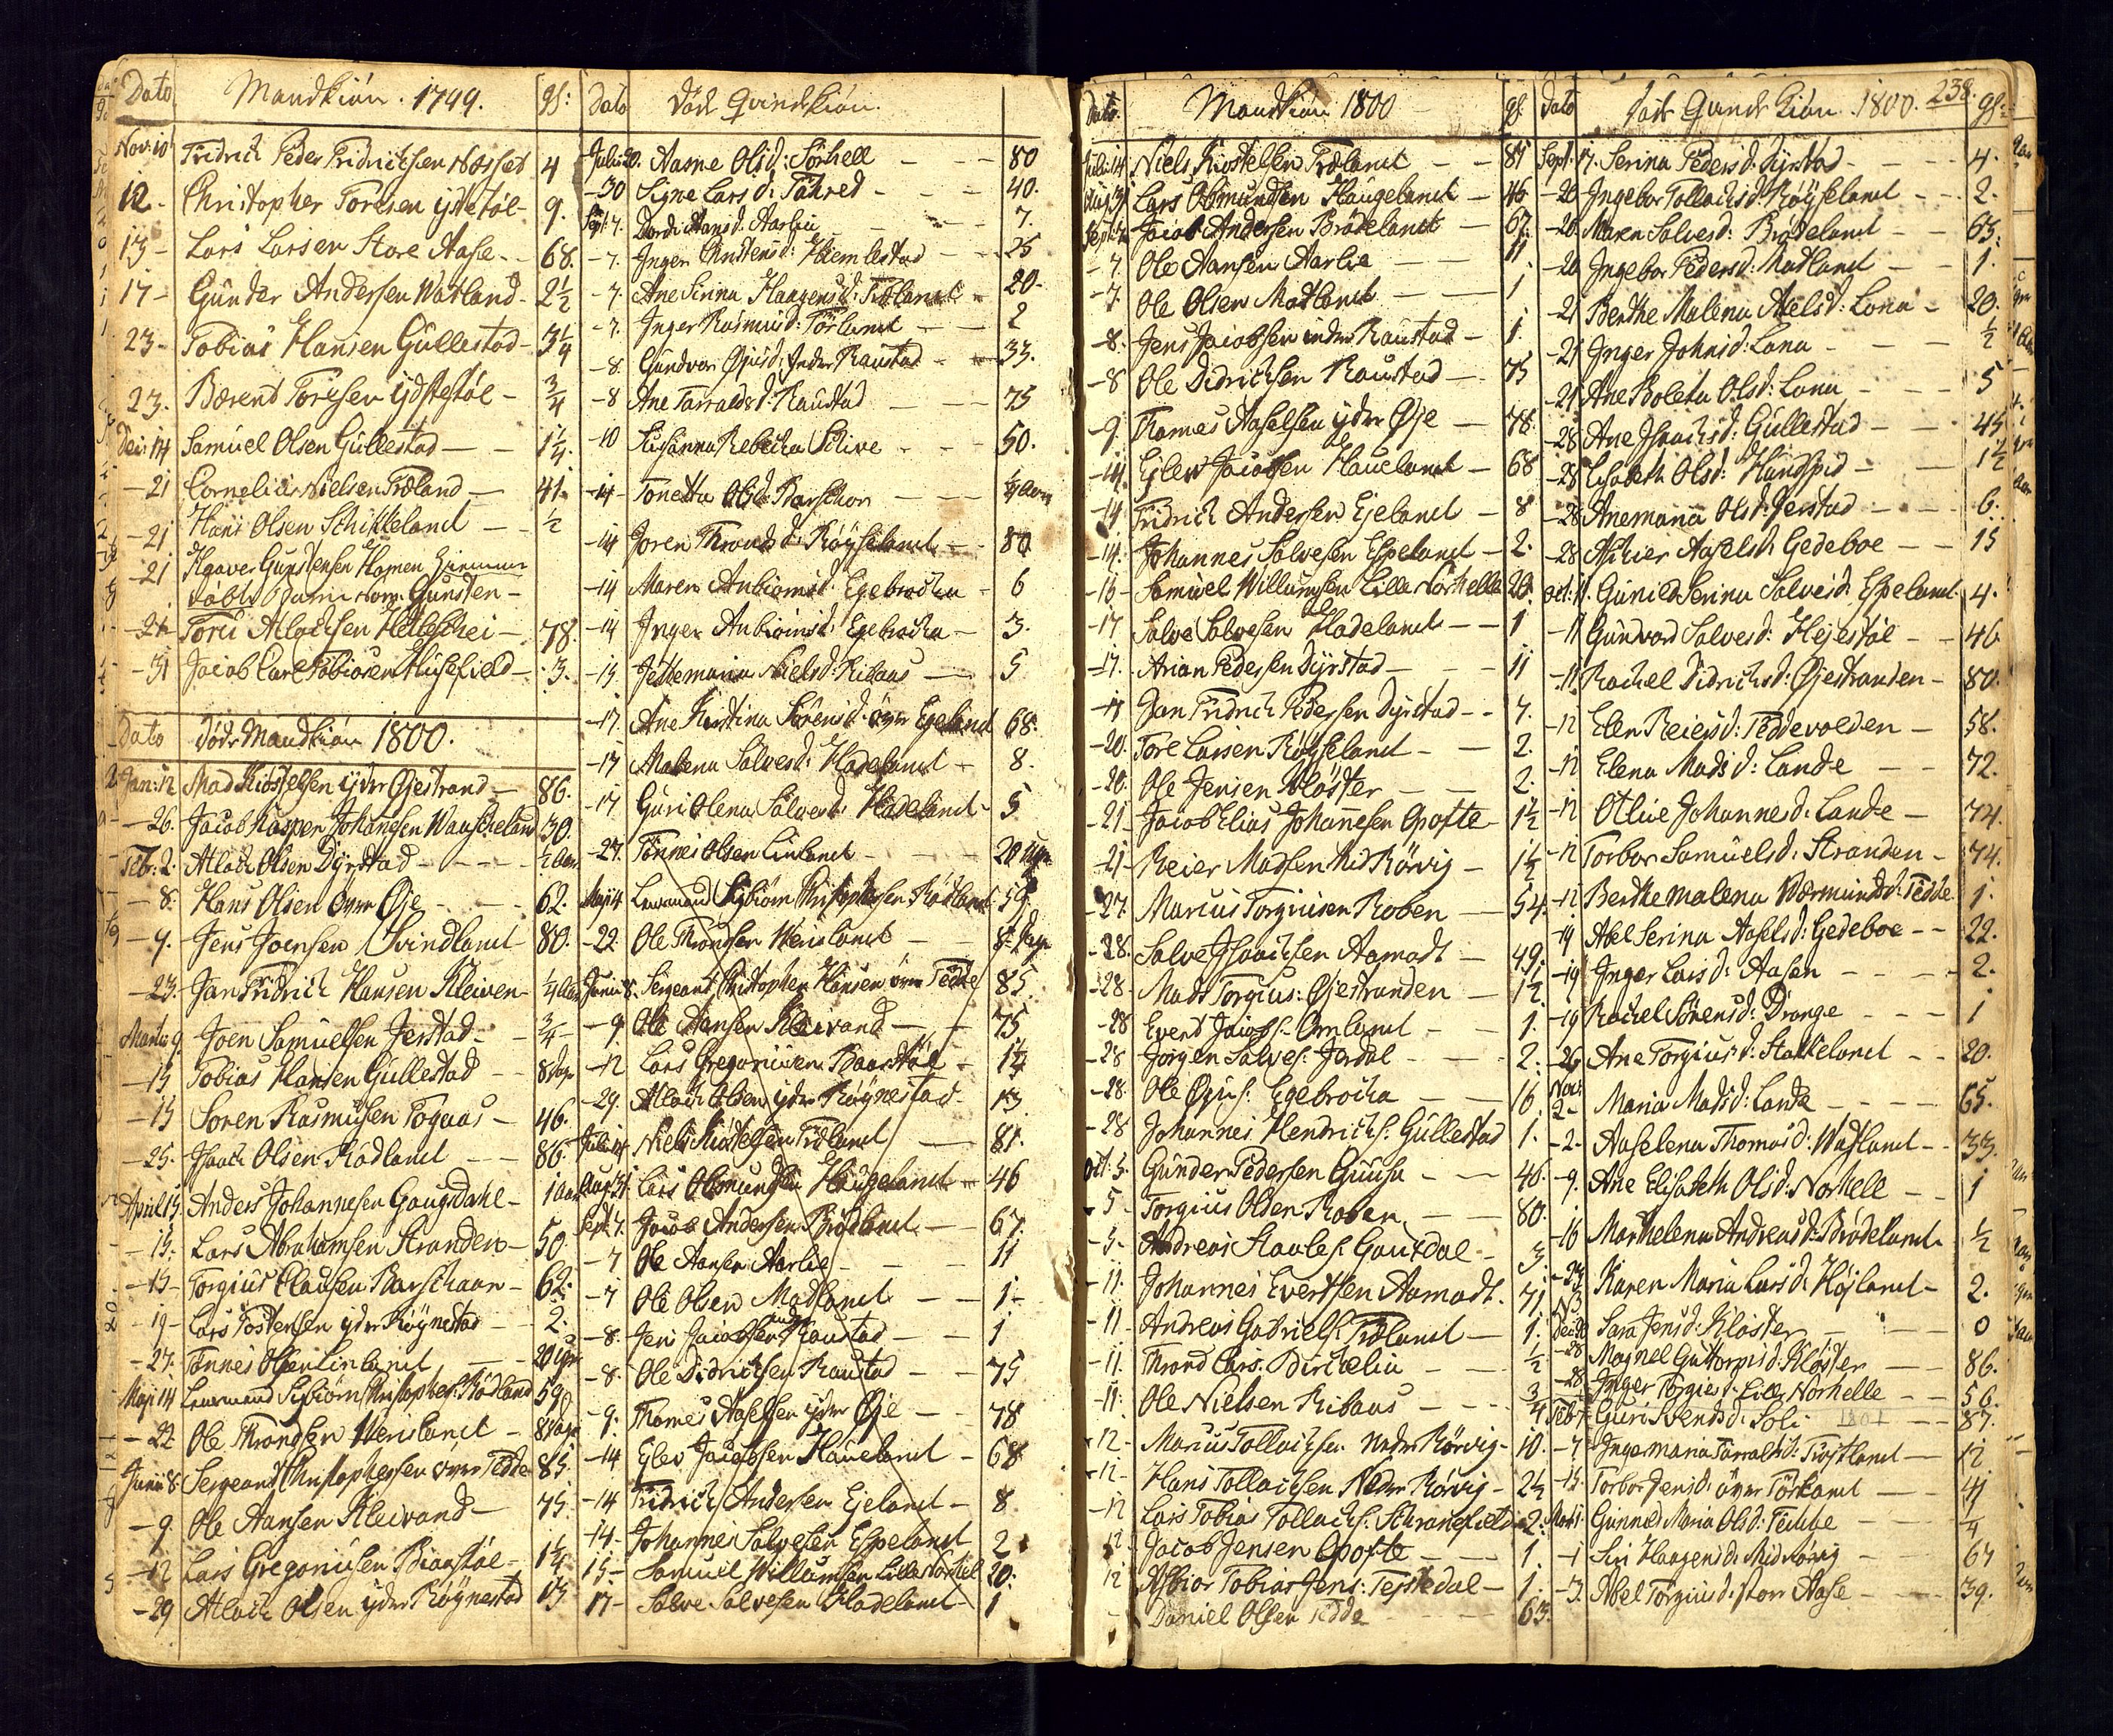 Dato Mandkiön. 1799. gl:
Nov: 10 Fridrich Peder Fridrichsen Næsset 4
12- Christopher Toresen ydstetøl- 9.
13- Lars Larsen Store Aase- 68.
17- Gunder Andersen Watland- 2½
23- Tobias Hansen Gullestad- 3¼
23. Bærent Toresen Ydstestøl- ¾
Dec: 14 Samuel Olsen Gullestad- 1¼.
-21 Cornelius Nielsen Træland- 41.
-21 Hans Olsen Schikkeland- ½
-21 Haaver Gunstensen Homen
døbt Gunsten-
-21 Tore Atlachsen Hetleschei- 78.
-31 Jacob Carl Tobiasen Husefield- 3.
Dato Döde Mandkiön 1800.
Jan: 12 Mad Kiöstelsen ydre Øjestrand- 86.
-26. Jacob Kasper Johannesen Waascheland 30.
Febr: 2. Atlach Olsen Dyrstad- ½ Aar
-8. Hans Olsen Övre Øje- 62.
-9. Jens Joensen Svindland- 80.
-23. Jan Fridrich Hansen Kleiven- ¼ Aar
Martii 9 Joen Samuelsen Jerstad- ¾
-15 Tobias Hansen Gullestad- 8 Dage
-15 Sören Rasmusen Fogaas- 46.
-25. Isach Olsen Rödland- 86
April 15. Anders Johannesen Gaugsdahl- 1 Aar
-15. Lars Abrahamsen Stranden- 50.
-15- Torgius Clausen Barschaar- 62.
-19- Lars Tostensen ydre Röynestad- 2.
-27. Tönnes Olsen Linland- 20 Uger
Maji 14 Lensmand Sigbiörn Christophers: Rödland 59.
-22 Ole Thronsen Werisland- 8 Dage
Junii 8. Sergeant Christophersen övre Fedde 85.
-9. Ole Aansen Kleivand- 75.
-12 Lars Gregoriusen Braastøl- 1¼
-29 Atlach Olsen ydre Röynestad 13
Dato Döde Qvindekiön.
Julii 20. Aasne Olsd: Sörhell- 80
-30 Signe Larsd: Fahred- 40.
Sept: 7. Dordi Aansd: Aarlie 7.
-7. Inger Christensd: Hemlestad- 25
-7. Ane Sirina Haagensd: Træland- 20.
-7. Inger Rasmusd: Törland- 2
-8. Gundvor Øjusd: Indre Raustad- 33.
-8 Ane Tarraldsd: Raustad- 75
-10 Susanna Rebecha Schive- 50.
-14- Tonetta Olsd: Barschor- ¼ Aar
-14 Joren Thronsd: Röyseland- 80
-14 Maren Anbiörnsd: Egebrocha- 6
-14 Inger Anbiörnsd: Egebrocha- 3.
-15. Jettemaria Nielsd: Ribaas- 5
-17. Ane Kirstina Sörensd: övre Egeland 68.
-17 Malena Salvesd: Hadeland- 8.
-17 Guri Olena Salvesd: Hadeland- 5
-27. Tönnes Olsen Linland- 20 Uger
Maji 14 Lensmand Sigbiörn Christophersen Rödland 59.
-22. Ole Thronsen Werisland- 8 Dage
Junii 8. Sergeant Christopher Hansen övre Fedde 85.
-9. Ole Aansen Kleivand- 75
-12 Lars Gregoriusen Braastøl- 1¼
-29. Atlach Olsen ydre Röynestad- 13.
Julii 14 Niels Kiöstelsen Træland- 81.
Aug: 31 Lars Osmundsen Haugeland- 46
Sept: 7. Jacob Andersen Brödland- 67.
-7 Ole Aansen Aarlie- 11
-7 Ole Olsen Madland- 1.
-8. Jens Jacobsen indre Raustad- 1
-8. Ole Didrichsen Raustad- 75
-9. Thomes Aselsen ydre Øje- 78
-14 Eglev Jacobsen Haueland- 68
-14 Fridrich Andersen Egeland- 8
-14- Johannes Salvesen Espeland 2
15- Samuel Willumsen Lille Norhell 20.
17- Salve Salvesen Hadeland- 1
Dato. Mandkiön 1800 gl.
Julii 14 Niels Kiöstelsen Træland- 81
Aug: 31 Lars Osmundsen Haugeland- 46
Sept: 7 Jacob Andersen Brödeland- 67.
-7. Ole Aansen Aarlie- 11
-7. Ole Olsen Madland- 1
-8. Jens Jacobsen indre Raustad- 1.
-8 Ole Didrichsen Raustad- 75
-9. Thomes Aaselsen ydre Øje- 78.
-14. Eglev Jacobsen Haueland- 68
-14 Fridrich Andersen Egeland- 8
-14. Johannes Salvesen Espeland- 2.
-15- Samuel Willumsen Lille Norhelle 20.
-17 Salve Salvesen Hadeland- 1
-17. Arian Pedersen Dyrstad- 11
-17 Jan Fridrich Pedersen Dyrstad- 7.
-20. Tore Larsen Röyseland- 2.
-20. Ole Jensen Kloster- 2.
-21- Jacob Elias Johannesen Opofte 1½
-21- Reier Madsen Mid Rörvig- 1½
-27. Marcus Torgiusen Roben- 54.
-28. Salve Isaachsen Aamodt- 49.
-28 Mads Torgius: Øjestranden- 1½
-28 Evert Jacobs: Omland- 1.
-28 Jörgen Salves: Jerdal- 2.
-28. Ole Øjus: Egebrocha- 16
-28 Johannes Hendrichs: Gullestad 1.
Oct: 5. Gunder Pedersen Guusa- 40.
-5- Torgius Olsen Roben- 80.
-5- Andreas Staales: Gauxdal- 3.
-11. Johannes Evertsen Aamodt. 71.
-11 Andreas Gabriels: Træland- 1.
-11. Thrond Lars: Birkelia- ½
-11. Ole Nielsen Ribaas- ¾
-12- Marcus Tollachsen Nedre Rörvig- 10.
-12- Hans Tollachsen Nedre Rörvig- 2½
-12 Lars Tobias Tollachs: Schranefield 2.
12 Jacob Jensen Opofte- 1.
12 Asbiör Tobias Jens: Fejstedal- 1.
Daniel Olsen Fedde 63.
Dato Döde Qvinde Kiön 1800. 238. gl:
Sept: 17. Serina Pedersd: Dyrstad- 4.
-20 Ingebor Tollachsd: Röyseland- 2.
-20 Maren Salvesd: Brödeland- 63.
-20 Ingebor Pedersd: Madland- 1.
-21 Berthe Malena Atelsd: Lona- 20.
-21 Inger Johnsd: Lona- ½
-21 Ane Boleta Olsd: Lona- 5
-28 Ane Isaachsd: Gullestad- 45
-28 Elisabeth Olsd: Hundspid- 1½
-28 Anemaria Olsd: Jerstad- 6.
-28 Aaselsd: Gedeboe- 15
Oct: 11. Gunild Serina Salvesd: Espeland. 4.
-11 Gundvord Salvesd: Hejestøl- 46
-11 Rachel Didrichsd: Øjestranden- 80.
-12 Elen Reiersd: Feddevolden- 58.
-12 Elena Madsd: Lande- 72.
-12 Otlue Johannesd: Lande- 74.
-12 Torbor Samuelsd: Stranden- 74.
-12 Berthe Malena Wermundsd: Fedde 1.
-19 Abel Serina Aaselsd: Gedeboe- 22.
-19 Inger Larsd: Aasen- 2.
-19 Rachel Sörensd: Drange- 1
-26 Ane Torgiusd: Stakkeland- 20.
Nov: 2- Maria Madsd: Lande- 65.
-2- Aaselena Thomasd: Watland- 33.
-9. Ane Elisabeth Olsd: Norhelle- 1
-16 Marthelena Andreasd: Brödeland- ½
-23 Karen Maria Larsd: Höjland- 2.
Dec: Sara Jensd: Kloster- 0
-28 Magnel Guttormsd: Kloster- 86.
-28 Inger Torgiersd: Lille Norhelle- 56.
Feb: Guri Svendsd: Soli 1801 87.
-7- Ingermaria Tarraldsd: Træland- 12
-15. Torbor Jensd: övre Törland- 41
Mar: 1. Gunnild Maria Olsd: Teinge- ¼
-1 Siri Haagensd: Midrörvig- 67
-3. Abel Torgiusd: Store Aase- 39.